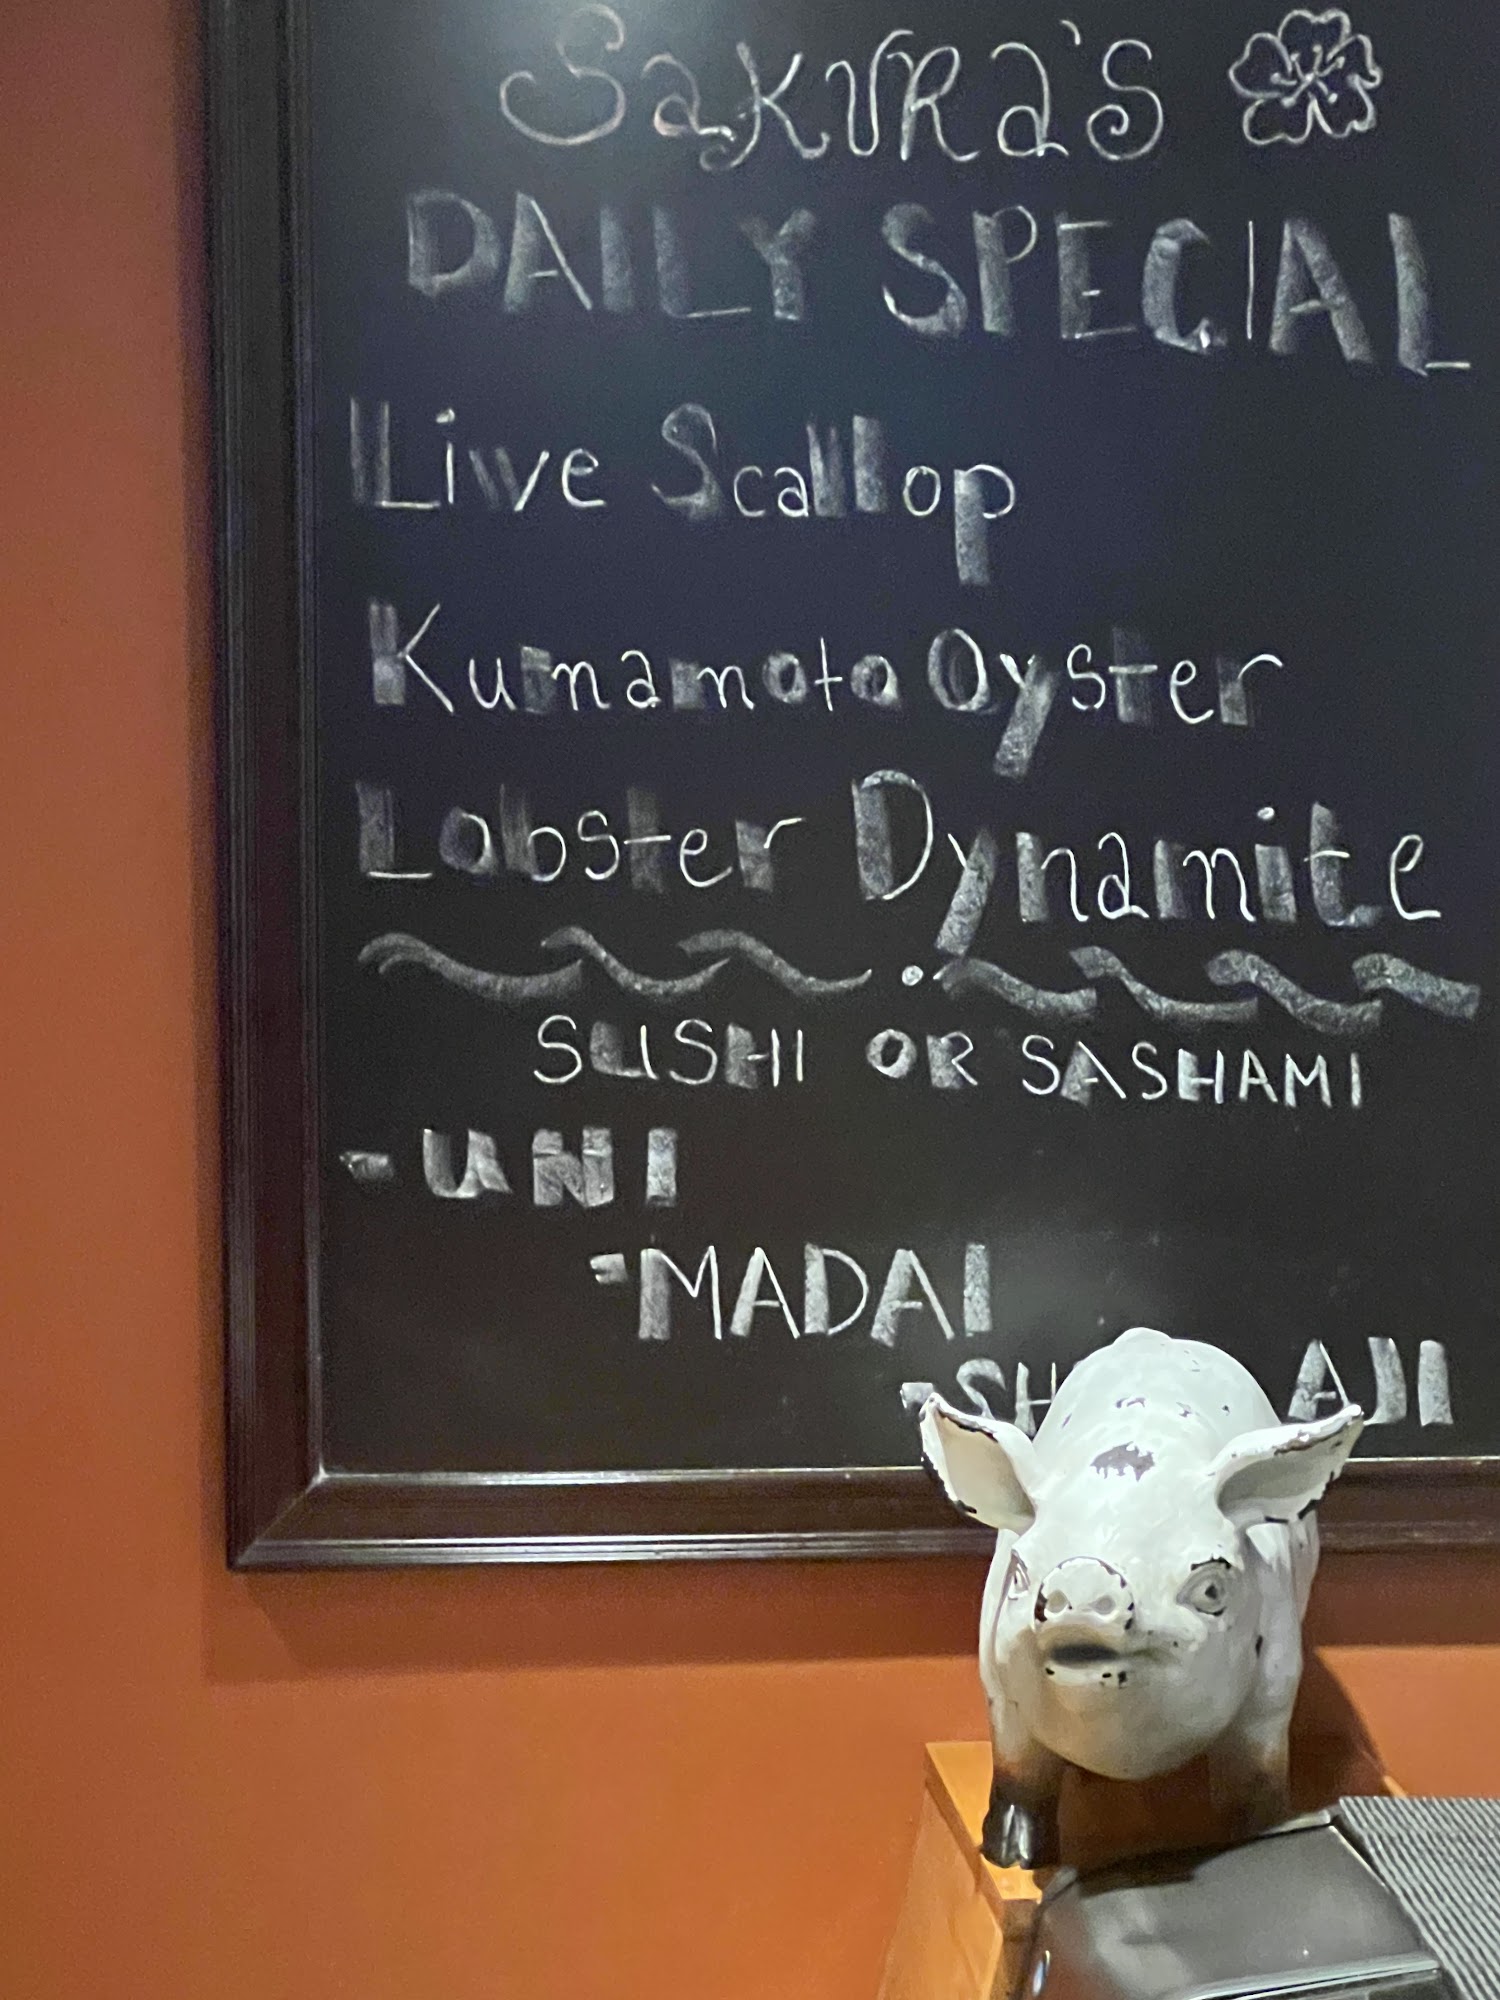 Sakura's
DAILY SPECIAL
Live Scallop
Kumamoto Oyster
Lobster Dynamite
SUSHI OR SASHAMI
-UNI
-MADAI
AJI